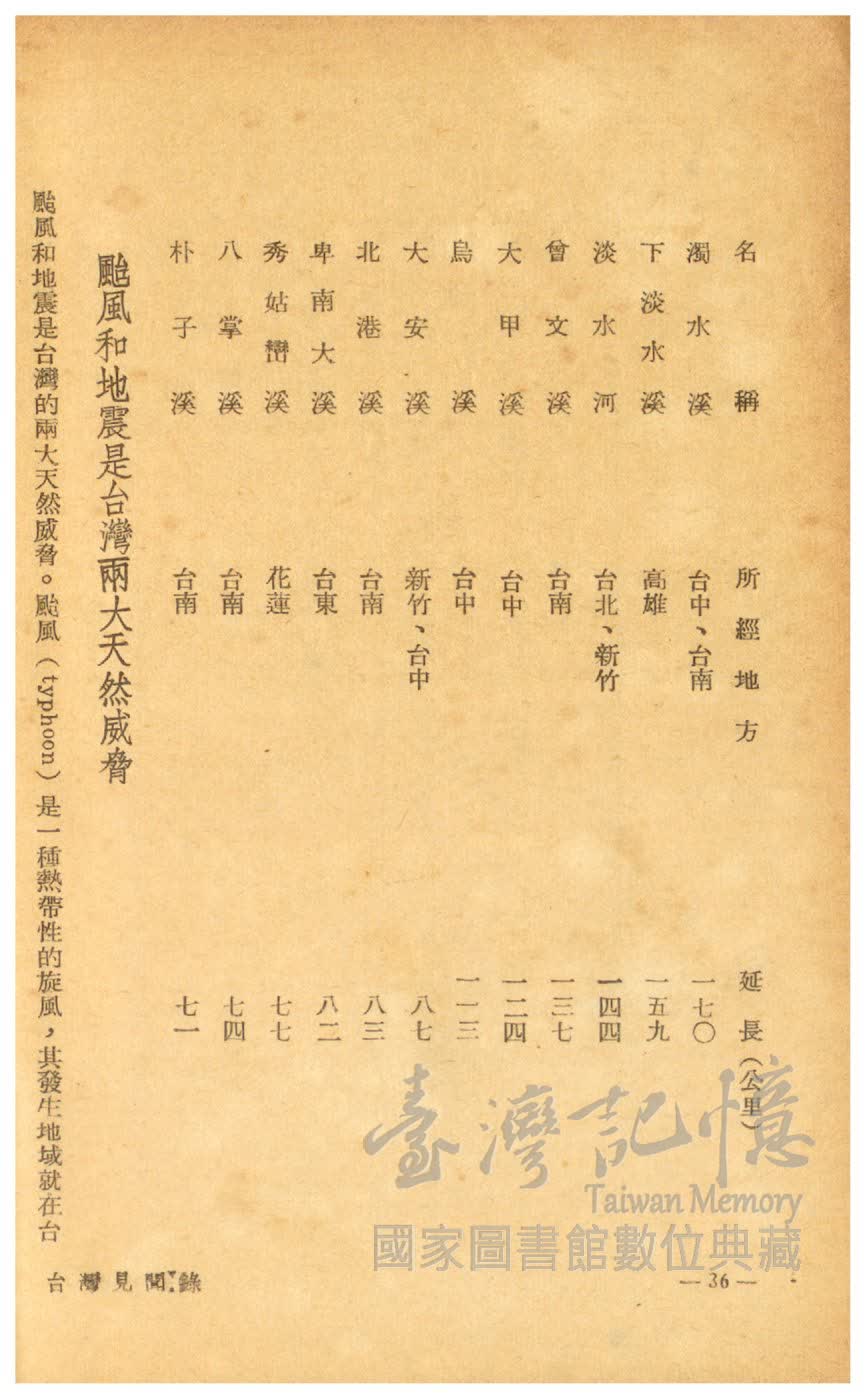 名稱 所經地方 延長(公里)
濁水溪 台中、台南 一七〇
下淡水溪 高雄 一五九
淡水河 台北、新竹 一四四
曾文溪 台南 一三七
大甲溪 台中 一二四
烏溪 台中 一一三
大安溪 新竹、台中 八七
北港溪 台南 八三
卑南大溪 台東 八二
秀姑巒溪 花蓮 七七
八掌溪 台南 七四
朴子溪 台南 七一
颱風和地震是台灣兩大天然威脅
颱風和地震是台灣的兩大天然威脅。颱風(typhoon)是一種熱帶性的旋風,其發生地域就在台
台灣見聞錄
—36—
臺灣記憶
Taiwan Memory
國家圖書館數位典藏